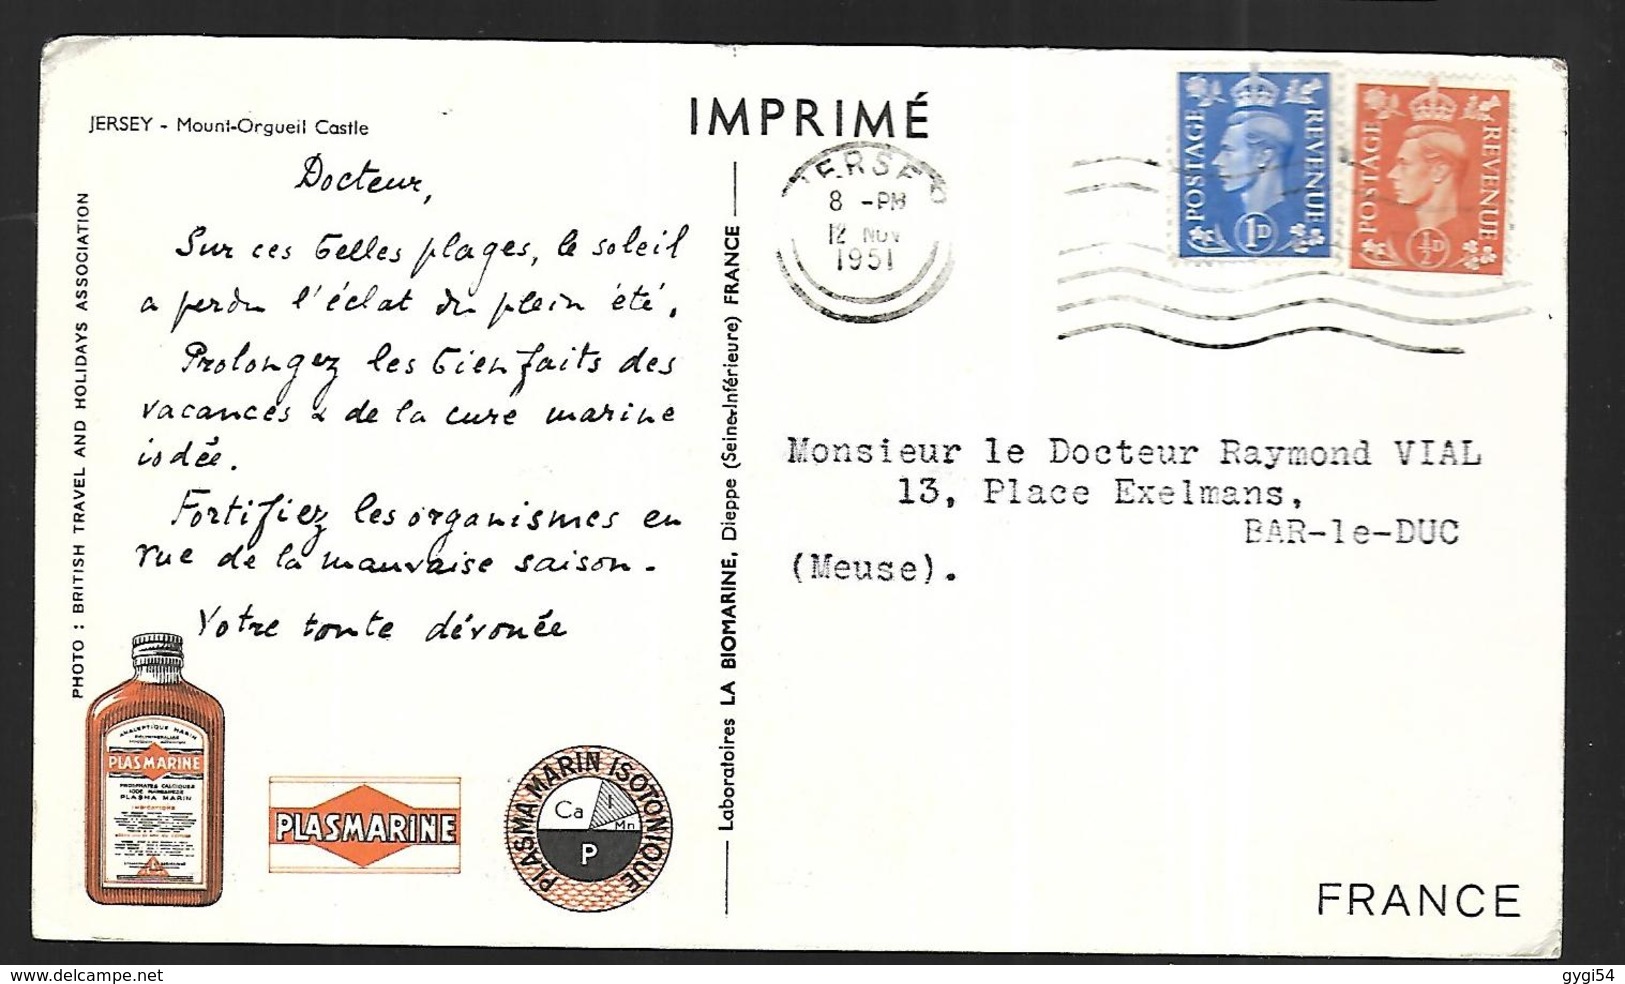 JERSEY - Mount-Orgueil Castle
IMPRIMÉ
Docteur,
Sur ces belles plages, le soleil
a perdu l'éclat du plein été.
Prolongez les bienfaits des
vacances & de la cure marine
iodée.
Fortifiez les organismes en
vue de la mauvaise saison.
Votre toute dévouée
PHOTO : BRITISH TRAVEL AND HOLIDAYS ASSOCIATION
ANALEPTIQUE MARIN
PLASMARINE
PHOSPHATES CALCIQUES
IODE MANGANESE
PLASMA MARIN
INDICATIONS
PLASMARINE
PLASMA MARIN ISOTONIQUE
Ca I Mn
P
Laboratoires LA BIOMARINE, Dieppe (Seine-Inférieure) FRANCE
JERSEY
8 -PM
12 NOV
1951
POSTAGE REVENUE
1D
POSTAGE REVENUE
½D
Monsieur le Docteur Raymond VIAL
13, Place Exelmans,
BAR-le-DUC
(Meuse).
FRANCE
www.delcampe.net
gygi54